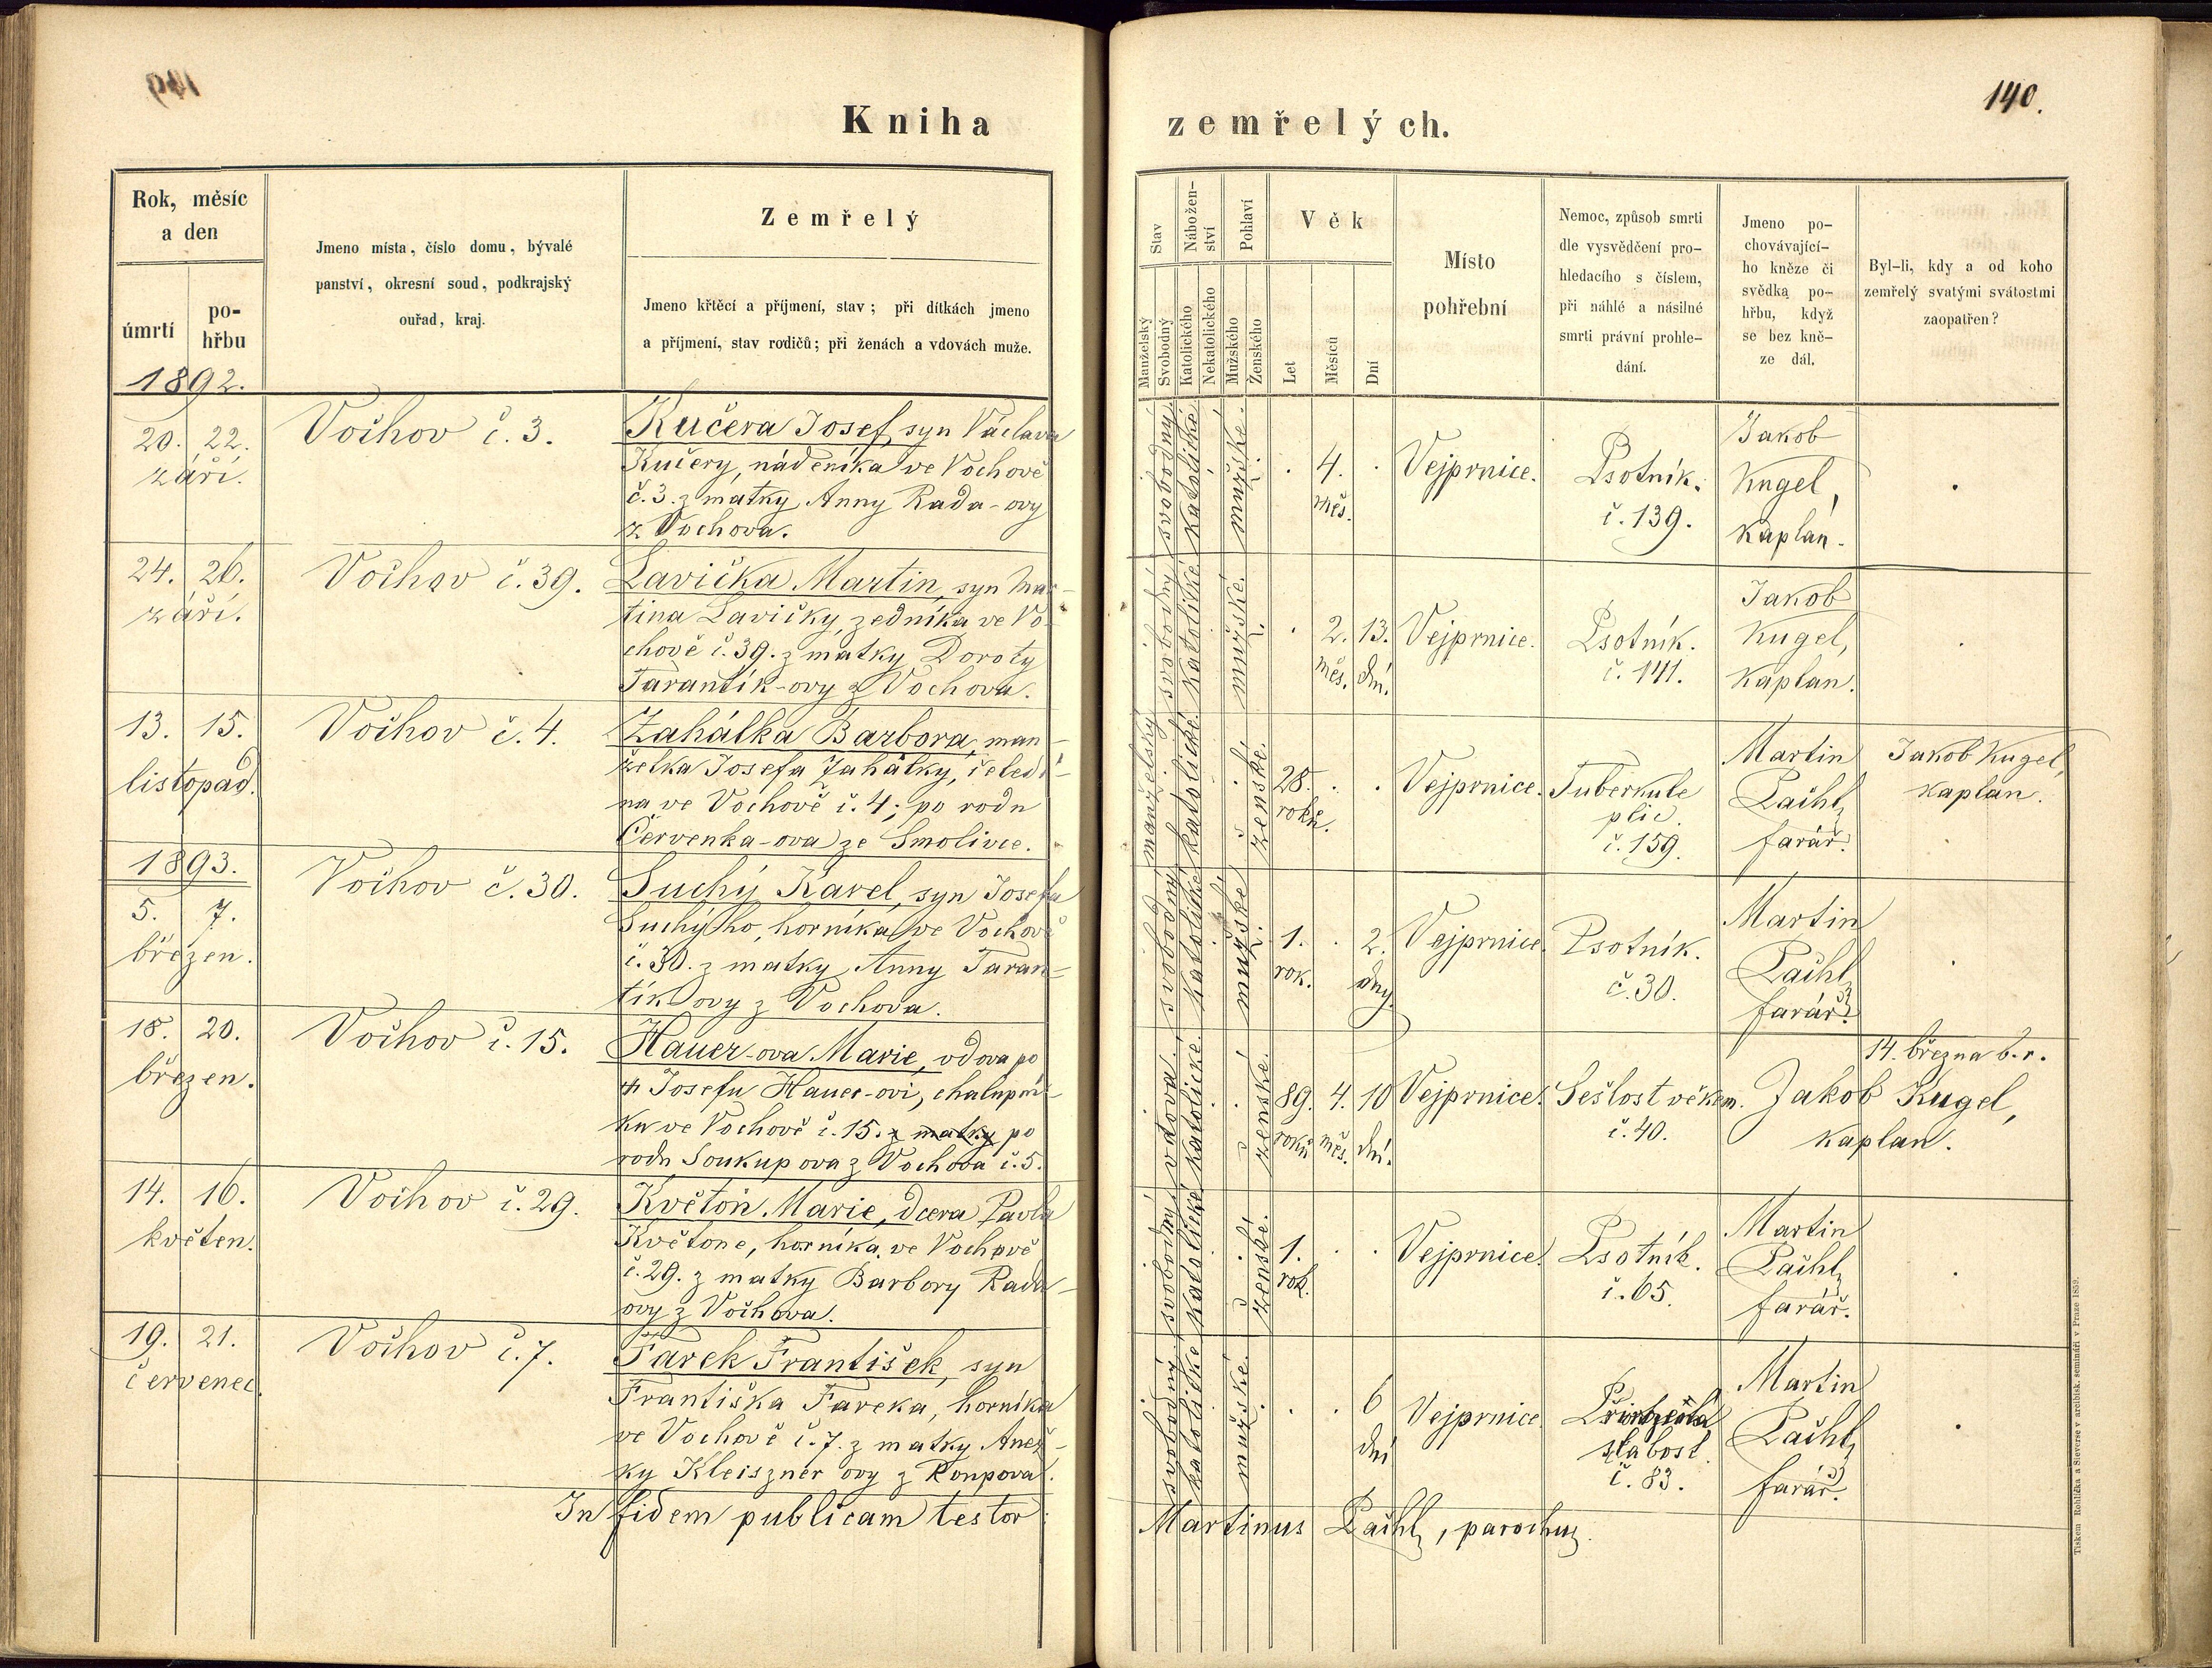 140.
Kniha zemřelých.
Rok, měsíc
a den
úmrtí
po-
hřbu
Jmeno místa, číslo domu, bývalé
panství, okresní soud, podkrajský
ouřad, kraj.
Zemřelý
Jmeno křtěcí a příjmení, stav; při dítkách jmeno
a příjmení, stav rodičů; při ženách a vdovách muže.
Stav
Manželský
Svobodný
Nábožen-
ství
Katolického
Nekatolického
Pohlaví
Mužského
Ženského
Věk
Let
Měsíců
Dní
Místo
pohřební
Nemoc, způsob smrti
dle vysvědčení pro-
hledacího s číslem,
při náhlé a násilné
smrti právní prohle-
dání.
Jmeno po-
chovávající-
ho kněze či
svědka po-
hřbu, když
se bez kně-
ze dál.
Byl-li, kdy a od koho
zemřelý svatými svátostmi
zaopatřen?
1892.
20. 22.
září.
Vochov č. 3.
Kučera Josef, syn Václava
Kučery, nádeníka ve Vochově
č. 3. z matky Anny Rada-ovy
z Vochova.
svobodný
katolické
mužské.
4.
měs.
Vejprnice.
Psotník.
č. 139.
Jakob
Kugel,
kaplan.
24. 26.
září.
Vochov č. 39.
Lavička Martin, syn Mar-
tina Lavičky, zedníka ve Vo-
chově č. 39. z matky Doroty
Tarantík-ovy z Vochova.
svobodný
katolické
mužské.
2. 13.
měs. dní.
Vejprnice.
Psotník.
č. 141.
Jakob
Kugel,
kaplan.
13. 15.
listopad.
Vochov č. 4.
Zahálka Barbora, man-
želka Josefa Zahálky, čeledí-
na ve Vochově č. 4; po rodu
Červenka-ova ze Smolivce.
manželský
katolické
ženské.
28.
roků.
Vejprnice.
Tuberkule
plic.
č. 159.
Martin
Pachl,
farář.
Jakob Kugel,
kaplan.
1893.
5. 7.
březen.
Vochov č. 30.
Suchý Karel, syn Josefa
Suchýho, horníka ve Vochově
č. 30. z matky Anny Taran-
tík-ovy z Vochova.
svobodný
katolické
mužské.
1. 2.
rok. dny.
Vejprnice.
Psotník.
č. 30.
Martin
Pachl,
farář.
18. 20.
březen.
Vochov č. 15.
Hauer-ova Marie, vdova po
✝ Josefu Hauer-ovi, chalupní-
ku ve Vochově č. 15. z matky po
rodu Soukupova z Vochova č. 5.
vdova.
katolické.
ženské.
89. 4. 10
roků měs. dní.
Vejprnice.
Sešlost věkem.
č. 40.
14. března b. r.
Jakob Kugel,
kaplan.
14. 16.
květen.
Vochov č. 29.
Květoň Marie, dcera Pavla
Květoně, horníka ve Vochově
č. 29. z matky Barbory Rada-
ovy z Vochova.
svobodný
katolické
ženské.
1.
rok.
Vejprnice.
Psotník.
č. 65.
Martin
Pachl,
farář.
19. 21.
červenec.
Vochov č. 7.
Farek František, syn
Františka Fareka, horníka
ve Vochově č. 7. z matky Anež-
ky Kleiszner ovy z Roupova.
svobodný
katolické
mužské.
6
dní
Vejprnice.
slabost.
č. 83.
Martin
Pachl,
farář.
In fidem publicam testor
Martinus Pachl, parochus.
Tiskem Rohlíčka a Sieverse v arcibisk. semináři v Praze 1859.